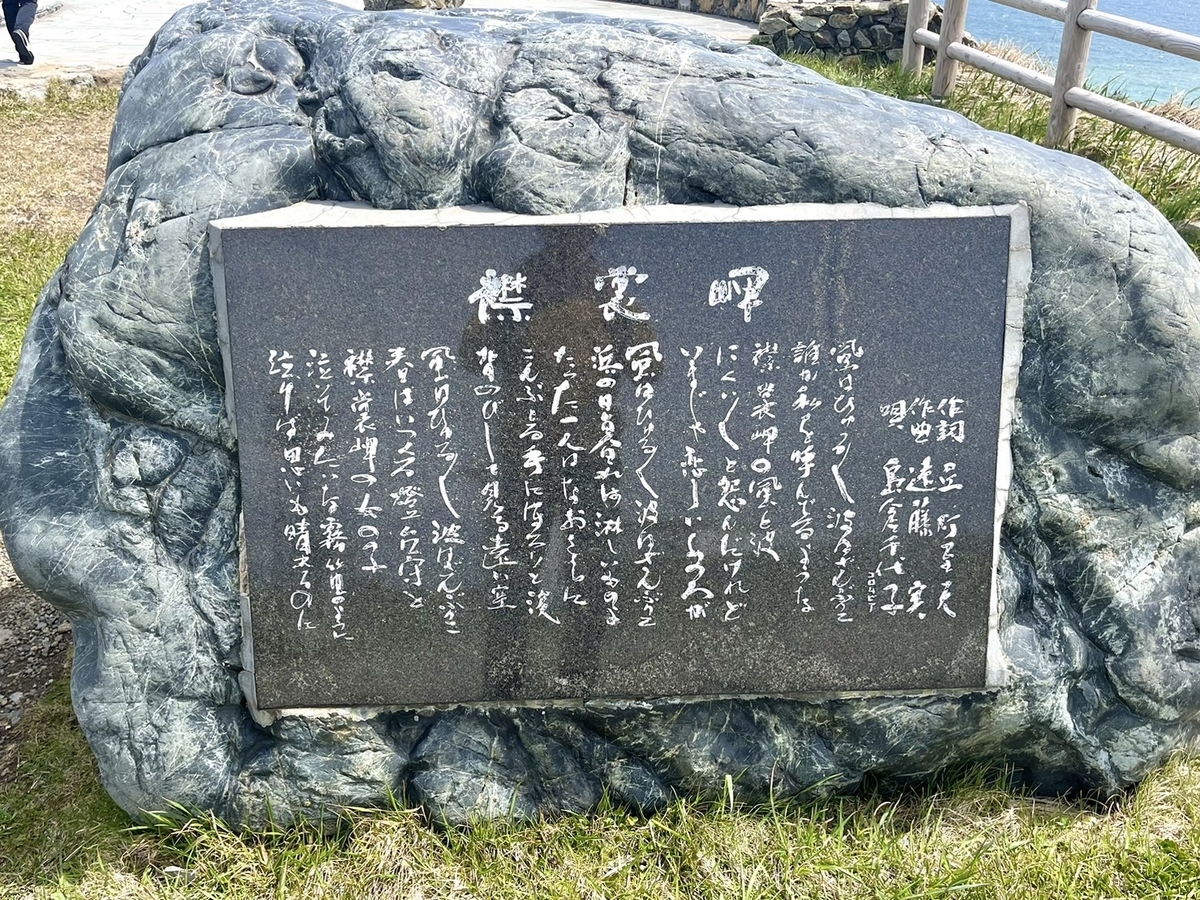 襟裳岬
作詞 丘 灯至夫
作曲 遠藤 実
唄 島倉千代子
コロムビア
風はひゅる〱 波はざんぶりこ
誰か私を呼んでるような
襟裳岬の風と波
にくい〱と怨んだけれど
いまじゃ恋しいあの人が
風はひゅる〱 波はざんぶりこ
浜の日昏れは淋しいものよ
たった一人はなおさらに
こんぶとる手にほろりと涙
背のびして見る遠い空
風はひゅる〱 波はざんぶりこ
春はいつくる燈台守と
襟裳岬の女の子
泣いてみたいな霧笛のように
泣けば思いも晴れるのに